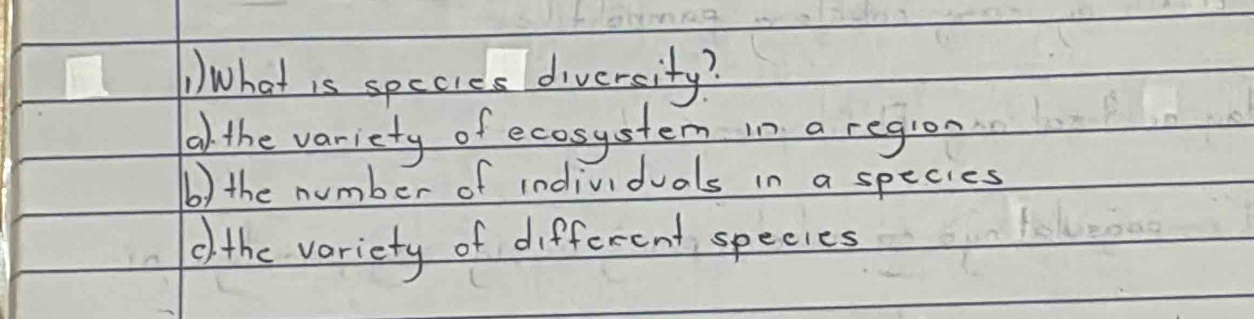 1) What is species diversity?
a). the variety of ecosystem in a region
b.) the number of individuals in a species
c). the variety of different species